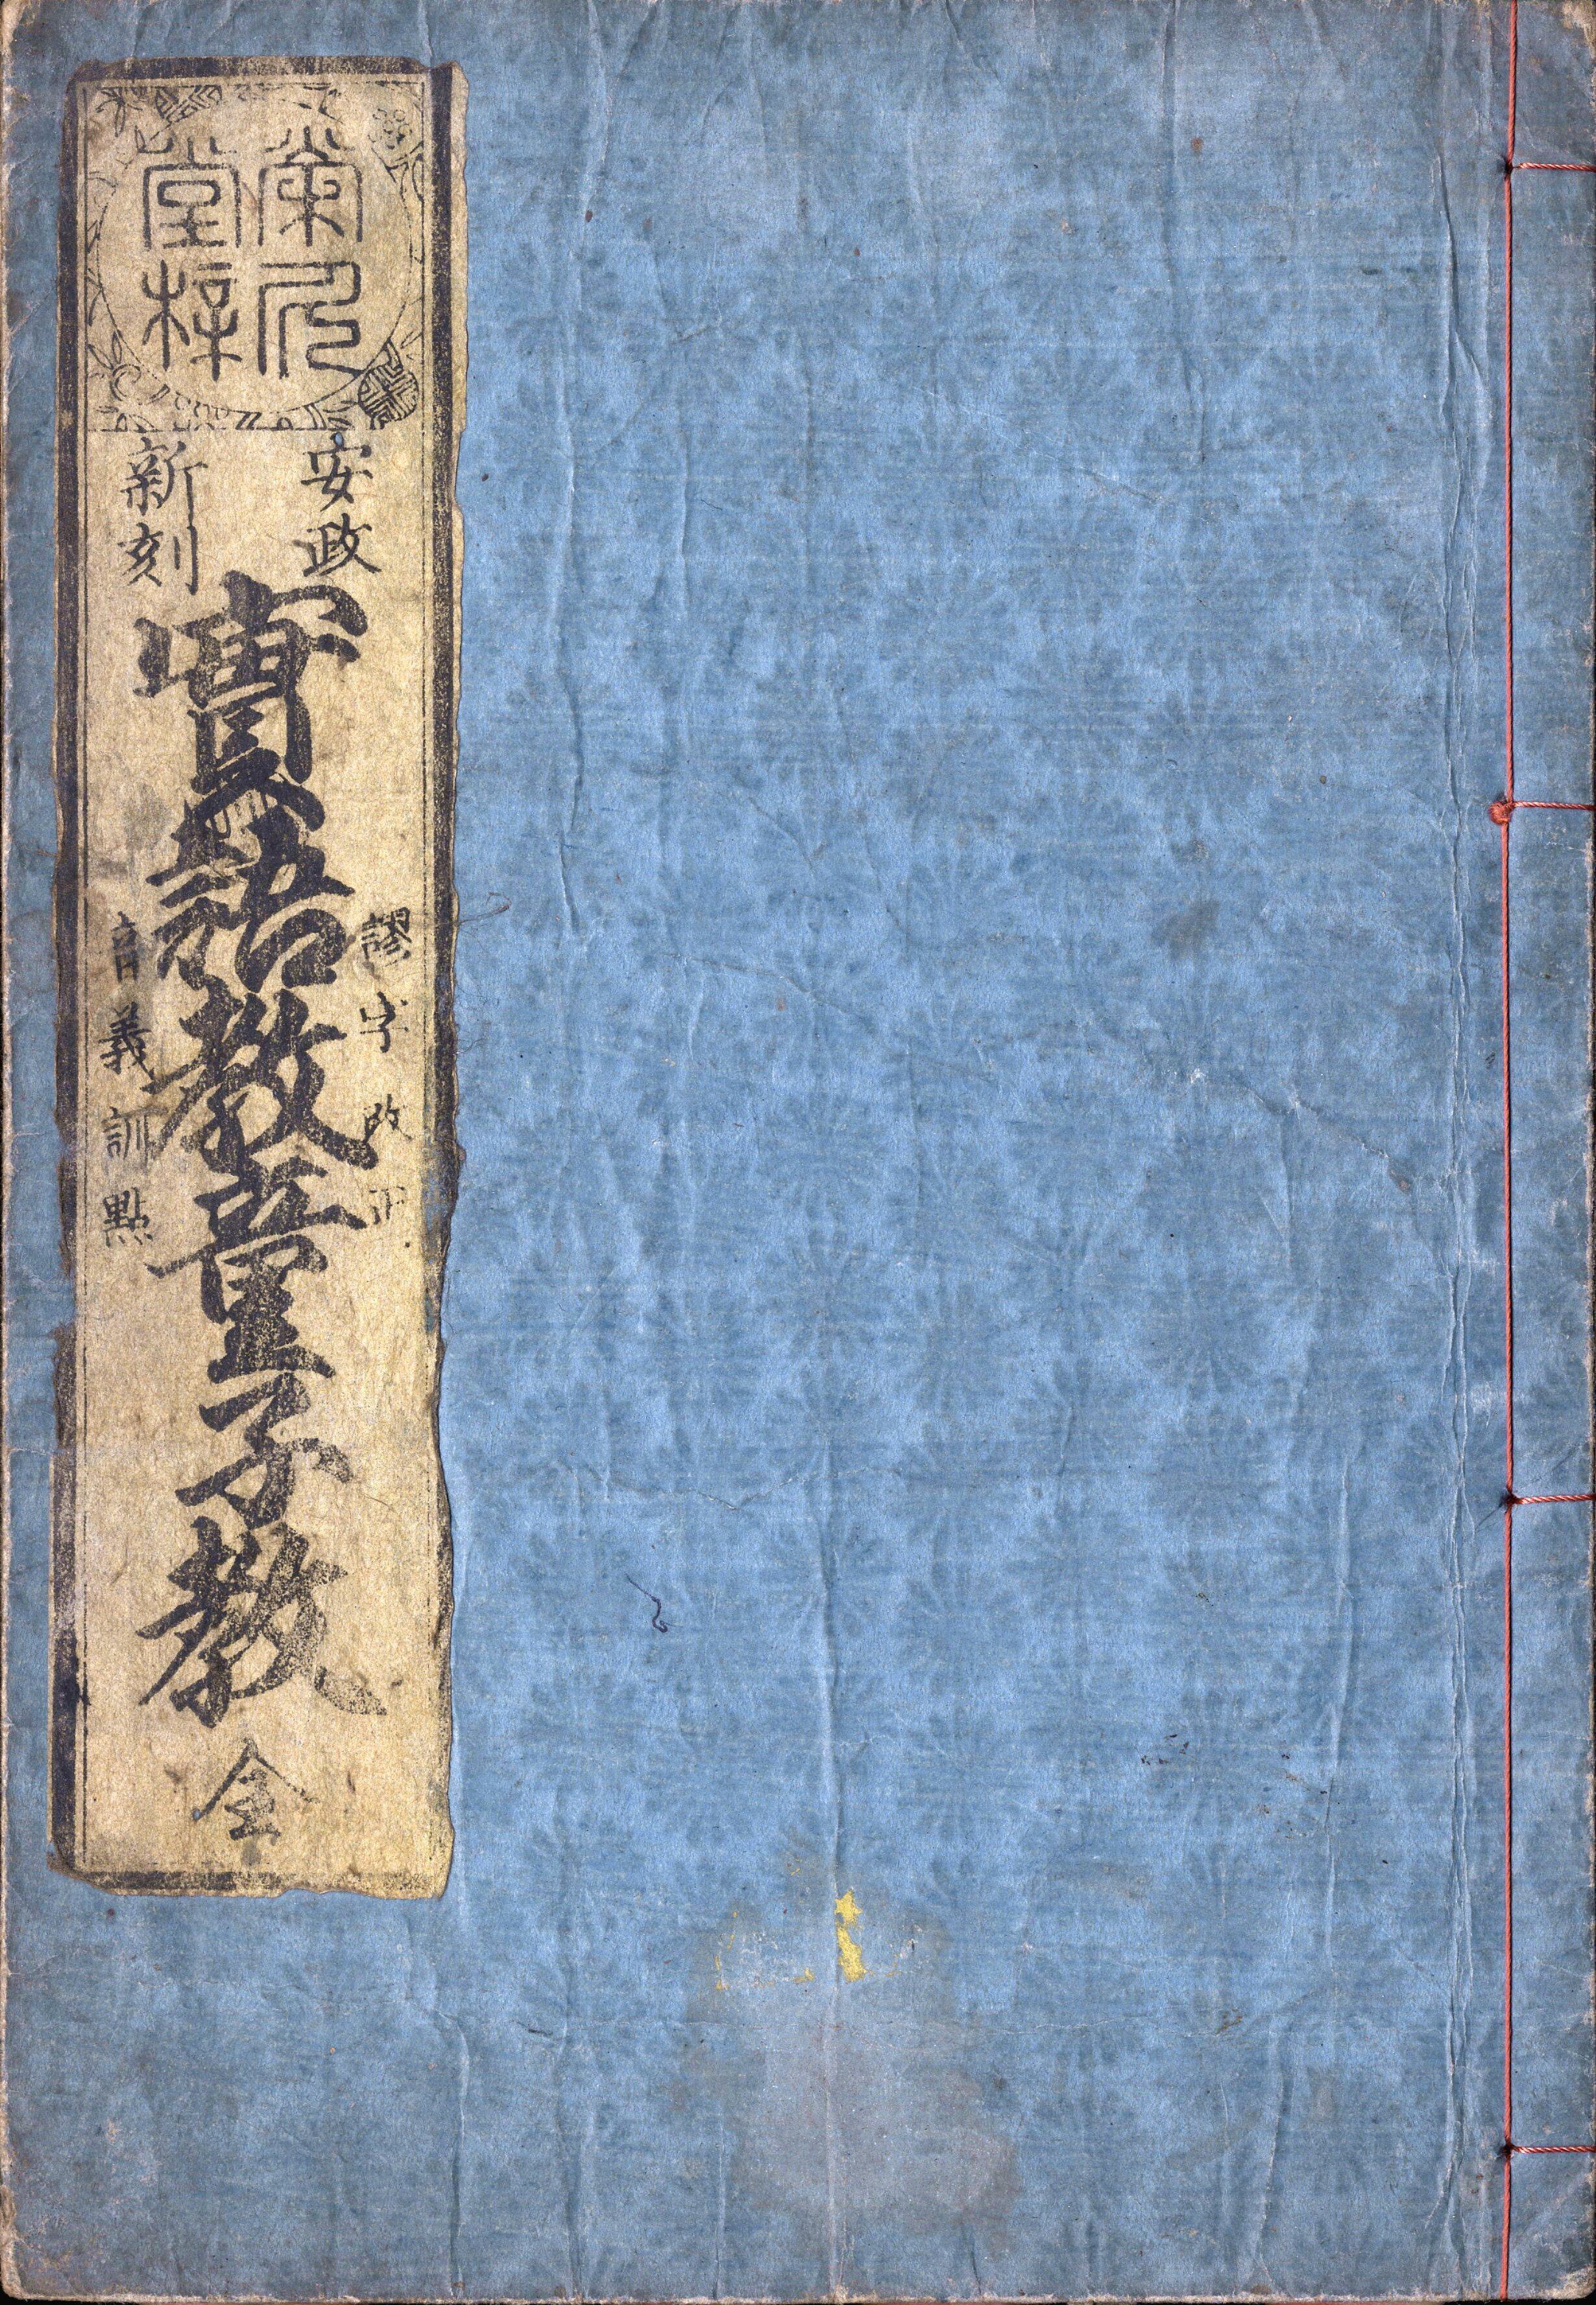 榮久
堂梓
安政
新刻
實語教童子教 全
謬字改正
音義訓點